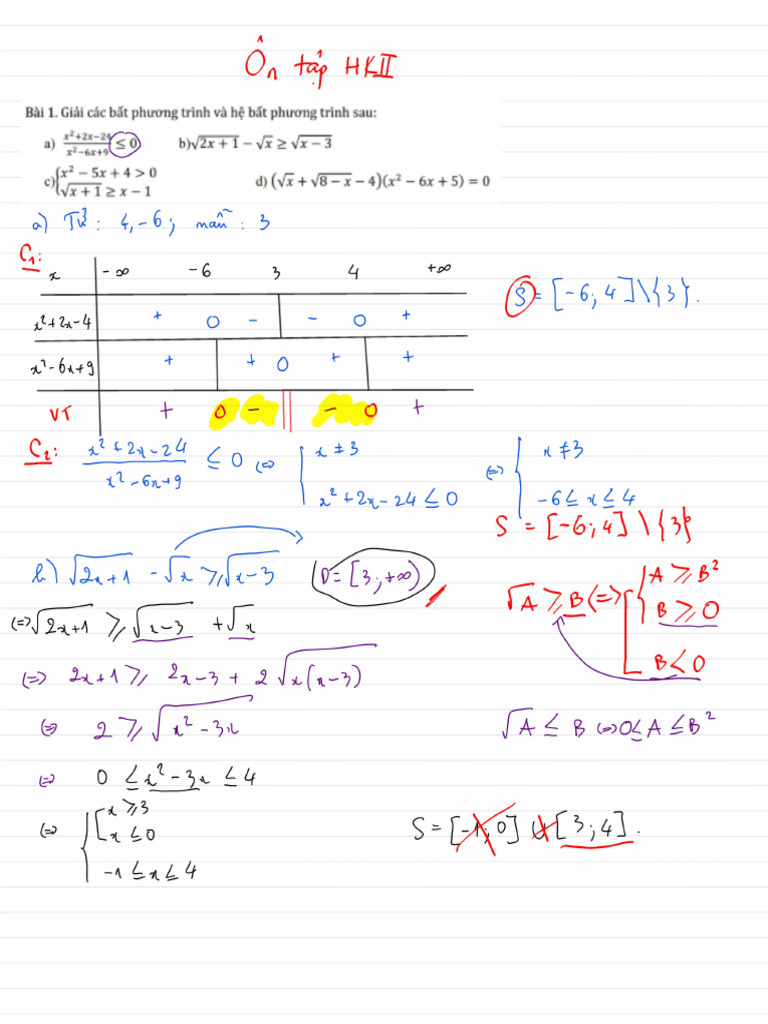 Ôn tập HKII
Bài 1. Giải các bất phương trình và hệ bất phương trình sau:
a) (x²+2x−24)/(x²−6x+9) ≤ 0 b)√(2x + 1) − √x ≥ √(x − 3)
c){x² − 5x + 4 > 0
{√(x + 1) ≥ x − 1 d) (√x + √(8 − x) − 4)(x² − 6x + 5) = 0
a) Tử : 4, -6 ; mẫu : 3
C₁:
x -∞ -6 3 4 +∞
x²+2x-4 + 0 - - 0 +
x²-6x+9 + + 0 + +
VT + 0 - || - 0 +
S = [-6; 4] \ {3}.
C₂: (x²+2x-24)/(x²-6x+9) ≤ 0 (=) { x ≠ 3 (=) { x ≠ 3
x²+2x-24 ≤ 0 -6 ≤ x ≤ 4
S = [-6; 4] \ {3}
b) √(2x+1) - √x ≥ √(x-3) D = [3; +∞)
(=) √(2x+1) ≥ √(x-3) + √x
(=) 2x+1 ≥ 2x-3 + 2√(x(x-3))
(=) 2 ≥ √(x²-3x)
(=) 0 ≤ x²-3x ≤ 4
(=) { [ x ≥ 3
x ≤ 0
-1 ≤ x ≤ 4
√A ≥ B (=) [ { A ≥ B²
B ≥ 0
B < 0
√A ≤ B (=) 0 ≤ A ≤ B²
S = [-1; 0] ∪ [3; 4].